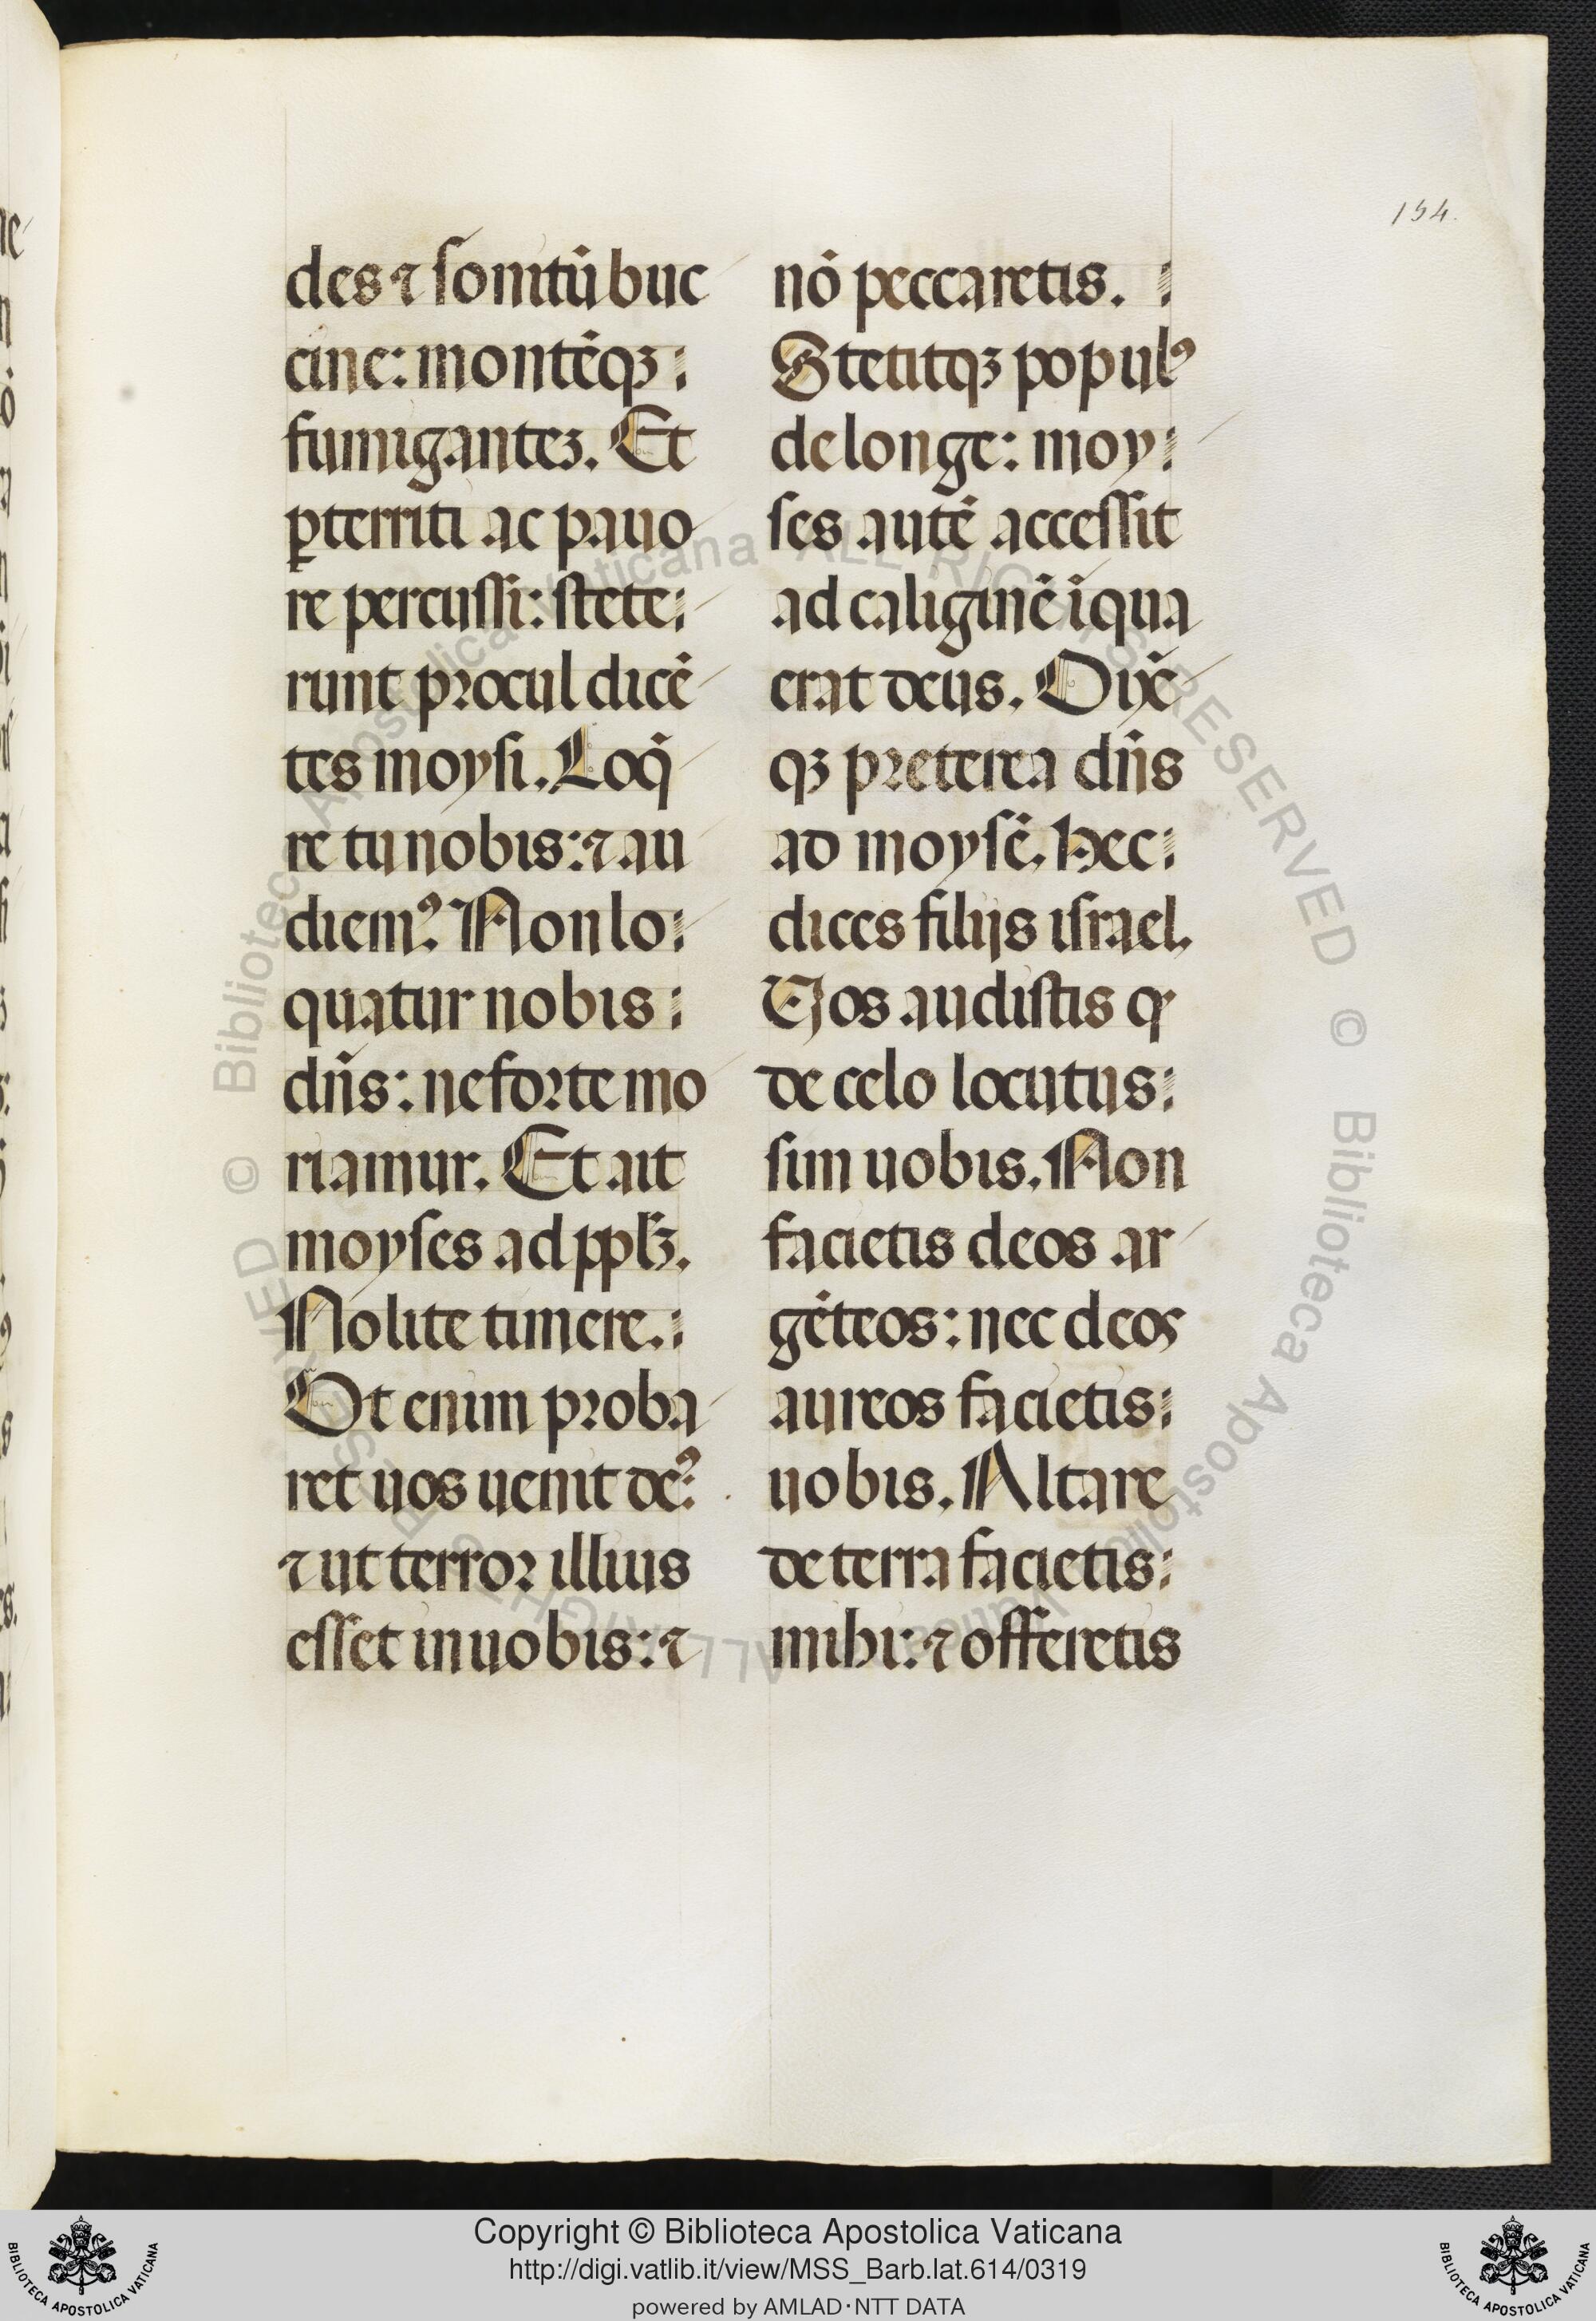 154.
des ⁊ sonitū buc
cine: montēqꝫ
fumigantez. Et
ꝑterriti ac pauo
re percussi: stete
runt procul dicē
tes moysi. Loq̄
re tu nobis: ⁊ au
diemꝰ. Non lo
quatur nobis
dn̄s: ne forte mo
riamur. Et ait
moyses ad ppłꝫ.
Nolite timere.
Ut enim proba
ret uos uenit deꝰ:
⁊ ut terror illius
esset in uobis: ⁊
nō peccaretis.
Stetitqꝫ populꝰ
de longe: moy
ses autē accessit
ad caliginē ī qua
erat deus. Dixit
qꝫ preterea dn̄s
ad moysē. Hec
dices filijs israel.
Uos audistis ꝙ
de celo locutus
sim uobis. Non
facietis deos ar
gēteos: nec deos
aureos facietis
uobis. Altare
de terra facietis
mihi: ⁊ offeretis
Copyright © Biblioteca Apostolica Vaticana
http://digi.vatlib.it/view/MSS_Barb.lat.614/0319
powered by AMLAD·NTT DATA
BIBLIOTECA APOSTOLICA VATICANA
BIBLIOTECA APOSTOLICA VATICANA
© Biblioteca Apostolica Vaticana ALL RIGHTS RESERVED © Biblioteca Apostolica Vaticana ALL RIGHTS RESERVED